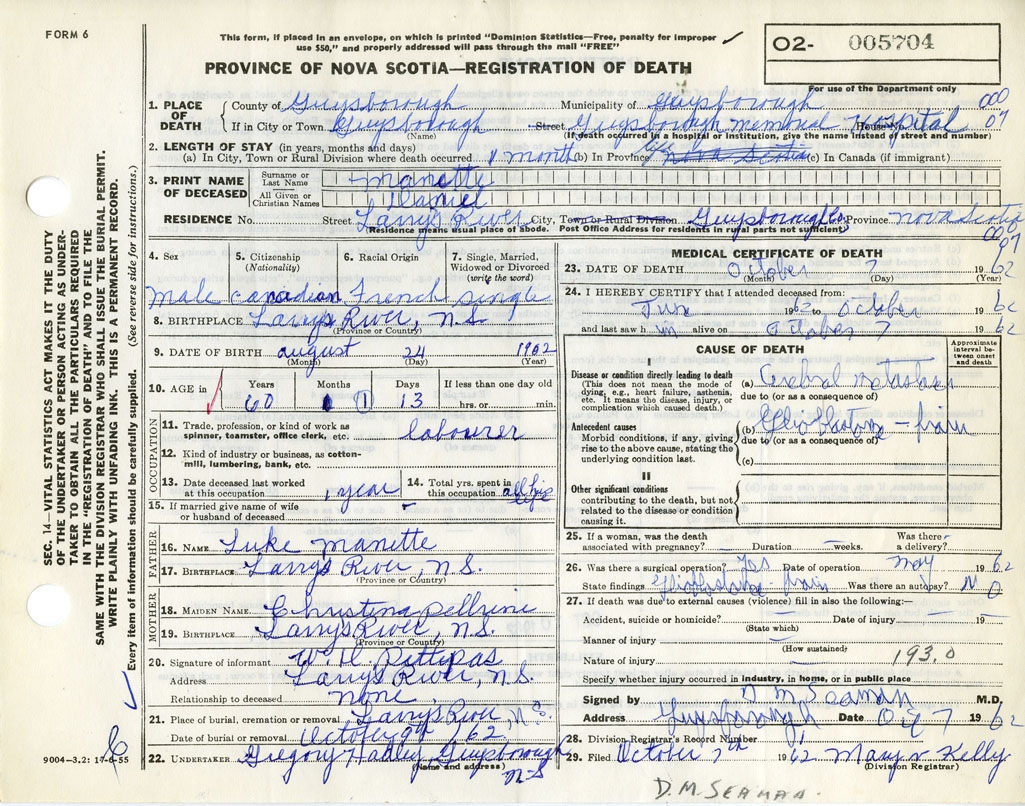 FORM 6
This form, if placed in an envelope, on which is printed "Dominion Statistics—Free, penalty for improper
use $50," and properly addressed will pass through the mail "FREE"
O2- 005704
PROVINCE OF NOVA SCOTIA—REGISTRATION OF DEATH
For use of the Department only
1. PLACE OF DEATH County of Guysborough Municipality of Guysborough 000
If in City or Town Guysborough Street Guysborough Memorial Hospital House No. 07
(Name) (If death occurred in a hospital or institution, give the name instead of street and number)
2. LENGTH OF STAY (in years, months and days)
(a) In City, Town or Rural Division where death occurred 1 month (b) In Province life Nova Scotia (c) In Canada (if immigrant)
3. PRINT NAME OF DECEASED Surname or Last Name Manette
All Given or Christian Names Daniel
RESIDENCE No. Street Larrys River City, Town or Rural Division Guysborough Co. Province Nova Scotia
Residence means usual place of abode. Post Office Address for residents in rural parts not sufficient.
000
07
4. Sex 5. Citizenship (Nationality) 6. Racial Origin 7. Single, Married, Widowed or Divorced (write the word)
Male Canadian French Single
8. BIRTHPLACE Larrys River, N.S.
(Province or Country)
9. DATE OF BIRTH August 24 1902
(Month) (Day) (Year)
10. AGE in Years Months Days If less than one day old
60 1 13 hrs. or min.
OCCUPATION
11. Trade, profession, or kind of work as spinner, teamster, office clerk, etc. labourer
12. Kind of industry or business, as cotton-mill, lumbering, bank, etc.
13. Date deceased last worked at this occupation 1 year 14. Total yrs. spent in this occupation all his life
15. If married give name of wife or husband of deceased –
FATHER
16. NAME Luke Manette
17. BIRTHPLACE Larrys River, N.S.
(Province or Country)
MOTHER
18. MAIDEN NAME Christina Pellrine
19. BIRTHPLACE Larrys River, N.S.
(Province or Country)
20. Signature of informant W. H. Pettipas
Address Larrys River, N.S.
Relationship to deceased None
21. Place of burial, cremation or removal Larrys River, N.S.
Date of burial or removal October 9th /62
22. UNDERTAKER Gregory Hadley, Guysborough
(Name and address) N-S
MEDICAL CERTIFICATE OF DEATH
23. DATE OF DEATH October 7 1962
(Month) (Day) (Year)
24. I HEREBY CERTIFY that I attended deceased from:
1962 to October 1962
and last saw him alive on October 7 1962
CAUSE OF DEATH
Approximate interval between onset and death
I
Disease or condition directly leading to death
(This does not mean the mode of dying, e.g., heart failure, asthenia, etc. It means the disease, injury, or complication which caused death.)
(a) Cerebral metastases
due to (or as a consequence of)
Antecedent causes
Morbid conditions, if any, giving rise to the above cause, stating the underlying condition last.
(b)
due to (or as a consequence of)
(c)
II
Other significant conditions
contributing to the death, but not related to the disease or condition causing it.
25. If a woman, was the death associated with pregnancy? – Duration weeks. Was there a delivery? –
26. Was there a surgical operation? Yes Date of operation May 1962
State findings Was there an autopsy? No
27. If death was due to external causes (violence) fill in also the following:—
Accident, suicide or homicide? Date of injury 19
(State which)
Manner of injury
(How sustained)
Nature of injury 193.0
Specify whether injury occurred in industry, in home, or in public place
Signed by D M Seaman M.D.
Address Guysborough Date Oct 7 1962
28. Division Registrar's Record Number
29. Filed October 7th 1962 Mary V Kelly
(Division Registrar)
D.M. SEAMAN.
SEC. 14—VITAL STATISTICS ACT MAKES IT THE DUTY
OF THE UNDERTAKER OR PERSON ACTING AS UNDER-
TAKER TO OBTAIN ALL THE PARTICULARS REQUIRED
IN THE "REGISTRATION OF DEATH" AND TO FILE THE
SAME WITH THE DIVISION REGISTRAR WHO SHALL ISSUE THE BURIAL PERMIT.
WRITE PLAINLY WITH UNFADING INK. THIS IS A PERMANENT RECORD.
Every item of information should be carefully supplied. (See reverse side for instructions.)
9004—3.2: 17-6-55